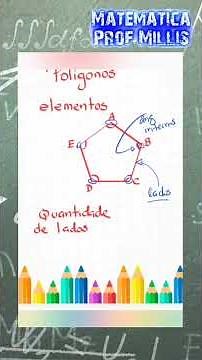 MATEMATICA
PROF MILLIS
Poligonos
elementos
A
Ang
internos
E
B
D
C
lados
Quantidade
de lados